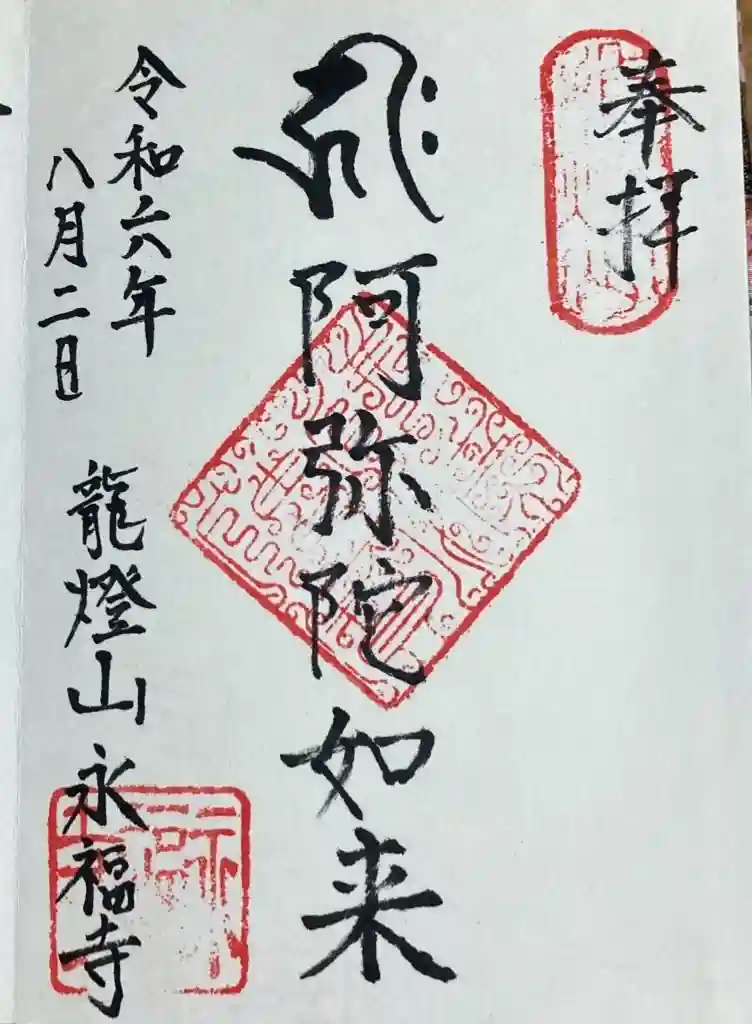 奉拝
𑖮𑖿𑖨𑖱𑖾 阿弥陀如来
令和六年
八月二日
龍燈山永福寺